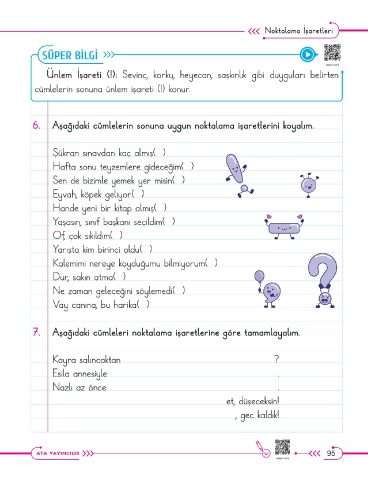 Noktalama İşaretleri
SÜPER BİLGİ
Ünlem İşareti (!): Sevinç, korku, heyecan, şaşkınlık gibi duyguları belirten
cümlelerin sonuna ünlem işareti (!) konur.
6. Aşağıdaki cümlelerin sonuna uygun noktalama işaretlerini koyalım.
Şükran sınavdan kaç almış( )
Hafta sonu teyzemlere gideceğim( )
Sen de bizimle yemek yer misin( )
Eyvah, köpek geliyor( )
Hande yeni bir kitap almış( )
Yaşasın, sınıf başkanı seçildim( )
Of, çok sıkıldım( )
Yarışta kim birinci oldu( )
Kalemimi nereye koyduğumu bilmiyorum( )
Dur, sakın atma( )
Ne zaman geleceğini söylemedi( )
Vay canına, bu harika( )
7. Aşağıdaki cümleleri noktalama işaretlerine göre tamamlayalım.
Kayra salıncaktan ?
Esila annesiyle .
Nazlı az önce .
et, düşeceksin!
, geç kaldık!
ATA YAYINCILIK
95